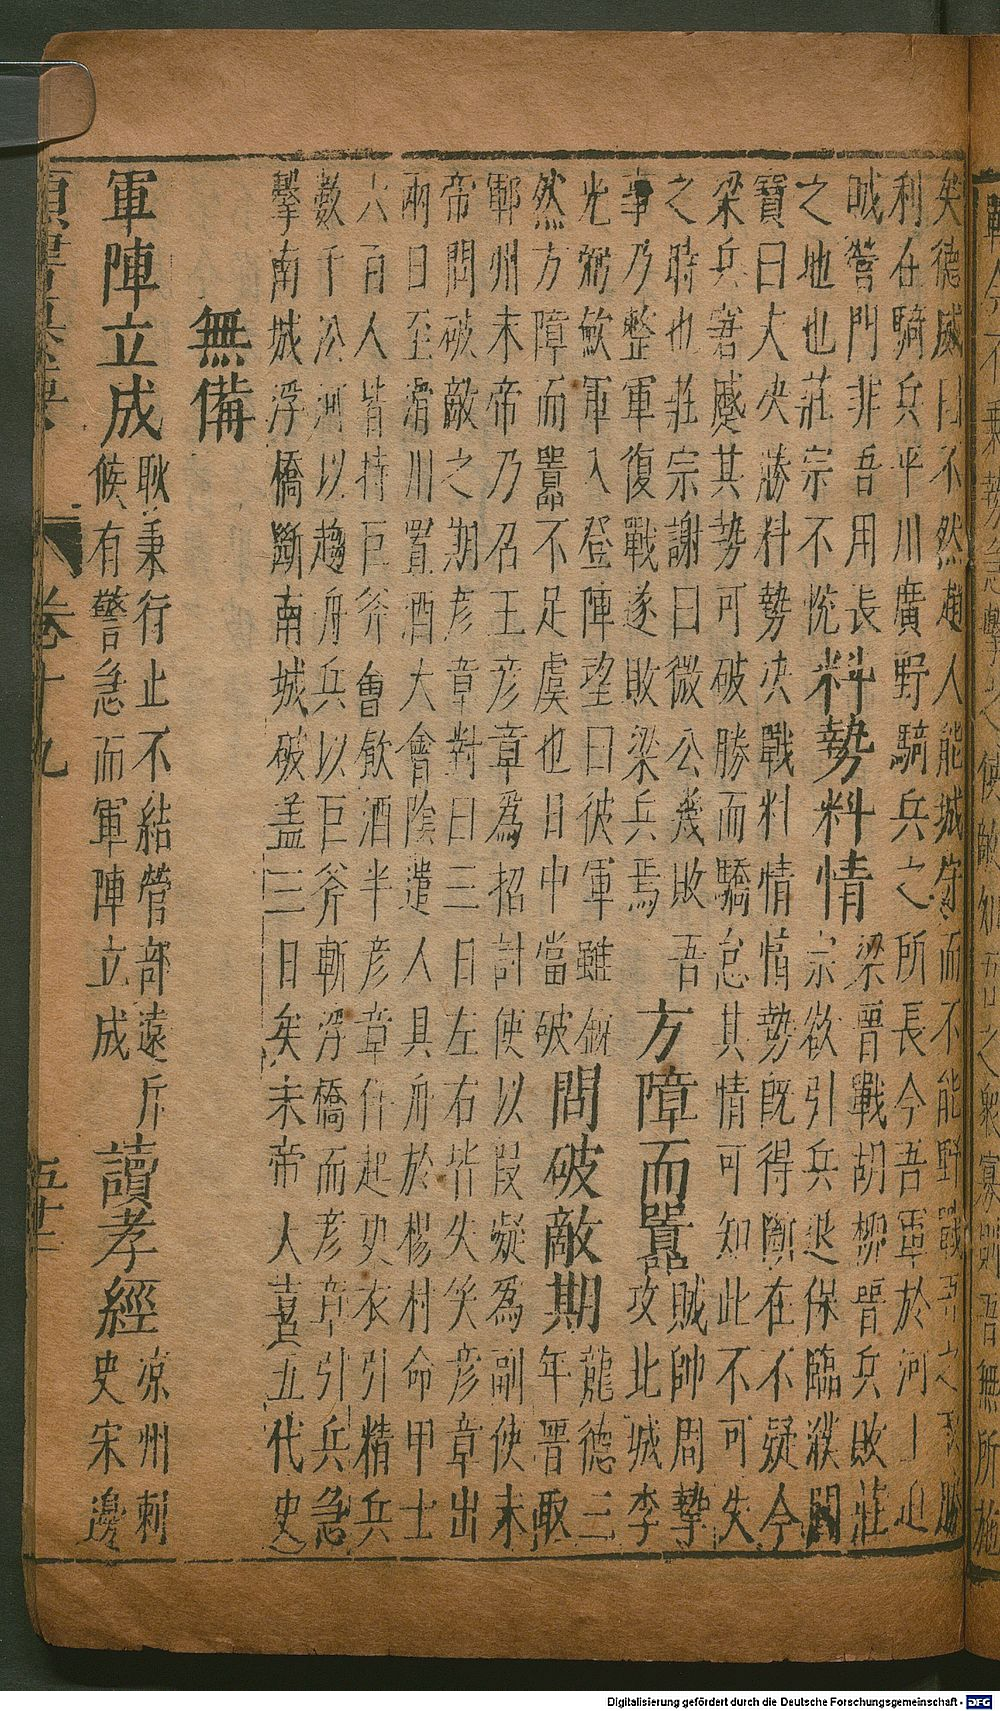 戰今不乘勢急擊之使敵知吾之衆寡則吾無所施
矣德威曰不然趙人能城守而不能野戰吾之取勝
利在騎兵平川廣野騎兵之所長今吾軍於河上迫
賊營門非吾用長
之地也莊宗不悅
料勢料情
梁晉戰胡柳晉兵敗莊
宗欲引兵退保臨濮閻
寶曰夫决勝料勢决戰料情情勢既得斷在不疑今
梁兵窘蹙其勢可破勝而驕怠其情可知此不可失
之時也莊宗謝曰微公幾敗吾
事乃整軍復戰遂敗梁兵焉
方障而囂
賊帥周摯
攻北城李
光弼斂軍入登陣望曰彼軍雖銳
然方障而囂不足虞也日中當破
問破敵期
龍德三
年晉取
鄆州末帝乃召王彦章爲招討使以段凝爲副使末
帝問破敵之期彦章對曰三日左右皆失笑彦章出
兩日至滑州置酒大會陰遣人具舟於楊村命甲士
六百人皆持巨斧會飲酒半彦章佯起更衣引精兵
數千㳂河以趨舟兵以巨斧斬浮橋而彦章引兵急
擊南城浮橋斷南城破盖三日矣末帝大喜五代史
無備
軍陣立成
耿秉行止不結營部遠斥
候有警急而軍陣立成
讀孝經
凉州刺
史宋邊
卷十九
Digitalisierung gefördert durch die Deutsche Forschungsgemeinschaft - DFG